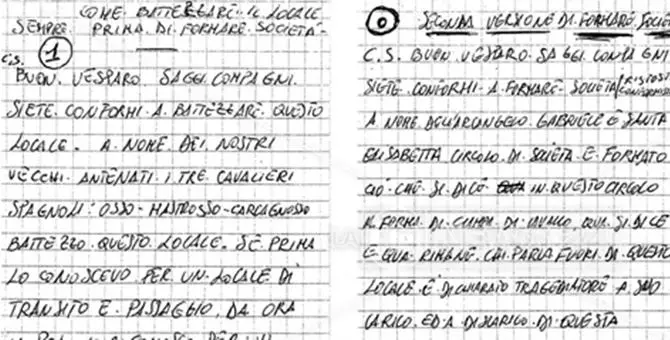 COME BATTEZZARE IL LOCALE
SEMPRE. PRIMA. DI. FORMARE. SOCIETA-
C.S. 1
BUON. VESPARO. SAGGI. COMPAGNI.
SIETE. CONFORMI. A. BATTEZZARE. QUESTO
LOCALE. A. NOME. DEI. NOSTRI
VECCHI. ANTENATI. I. TRE. CAVALIERI
SPAGNOLI: OSSO-MASTROSSO-CARCAGNOSSO
BATTEZZO. QUESTO. LOCALE. SE. PRIMA
LO CONOSCEVO. PER. UN. LOCALE. DI
TRANSITO E. PASSAGGIO. DA. ORA
0 SECONDA VERSIONE. DI. FORMARE.
C.S. BUON. VESPARO. SAGGI. COMPAGNI
SIETE. CONFORMI. A. FORMARE. SOCIETA
A NOME DELL'ARCANGELO. GABRIELE E SANTA
ELISABETTA CIRCOLO. DI. SOCIETA. E. FORMATO.
CIÒ. CHE. SI. DICE. IN. QUESTO CIRCOLO
A. FORMA. DI. DI. CAVALLO, QUA. SI. DICE
E. QUA. RIMANE. CHI. PARLA FUORI. DI. QUESTO
LOCALE. E' DICHIARATO TRAGEDIATORE A SUO
CARICO. ED. A DISCARICO. DI. QUESTA